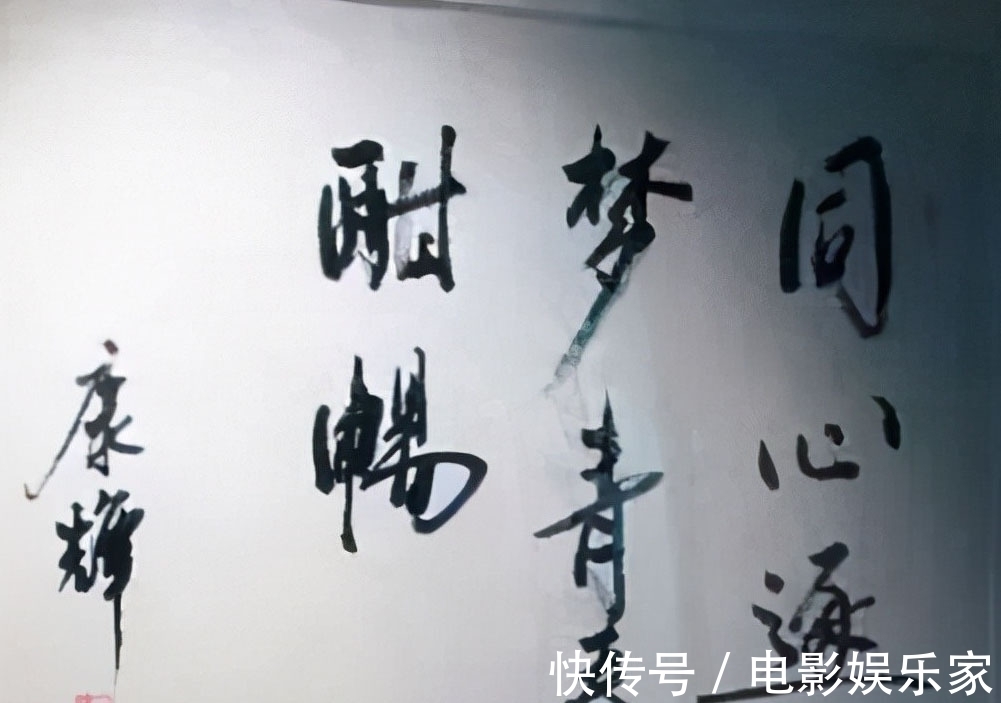 同心逐
梦青春
酣暢
康辉
快传号 / 电影娱乐家